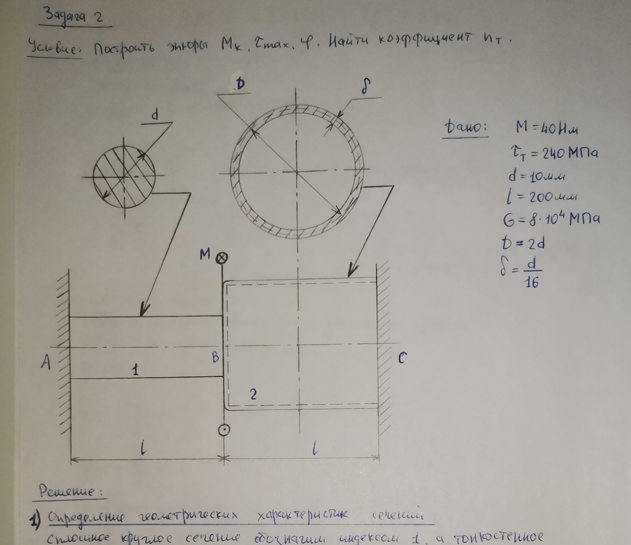 Задача 2
Условие: Построить эпюры Mк, τmax, φ. Найти коэффициент nт.
D
δ
d
Дано: M = 40 Нм
τт = 240 МПа
d = 10 мм
l = 200 мм
G = 8·10⁴ МПа
D = 2d
δ = d/16
M
A
1
B
2
C
l
l
Решение:
1) Определение геометрических характеристик сечений
Сплошное круглое сечение обозначим индексом 1, а тонкостенное